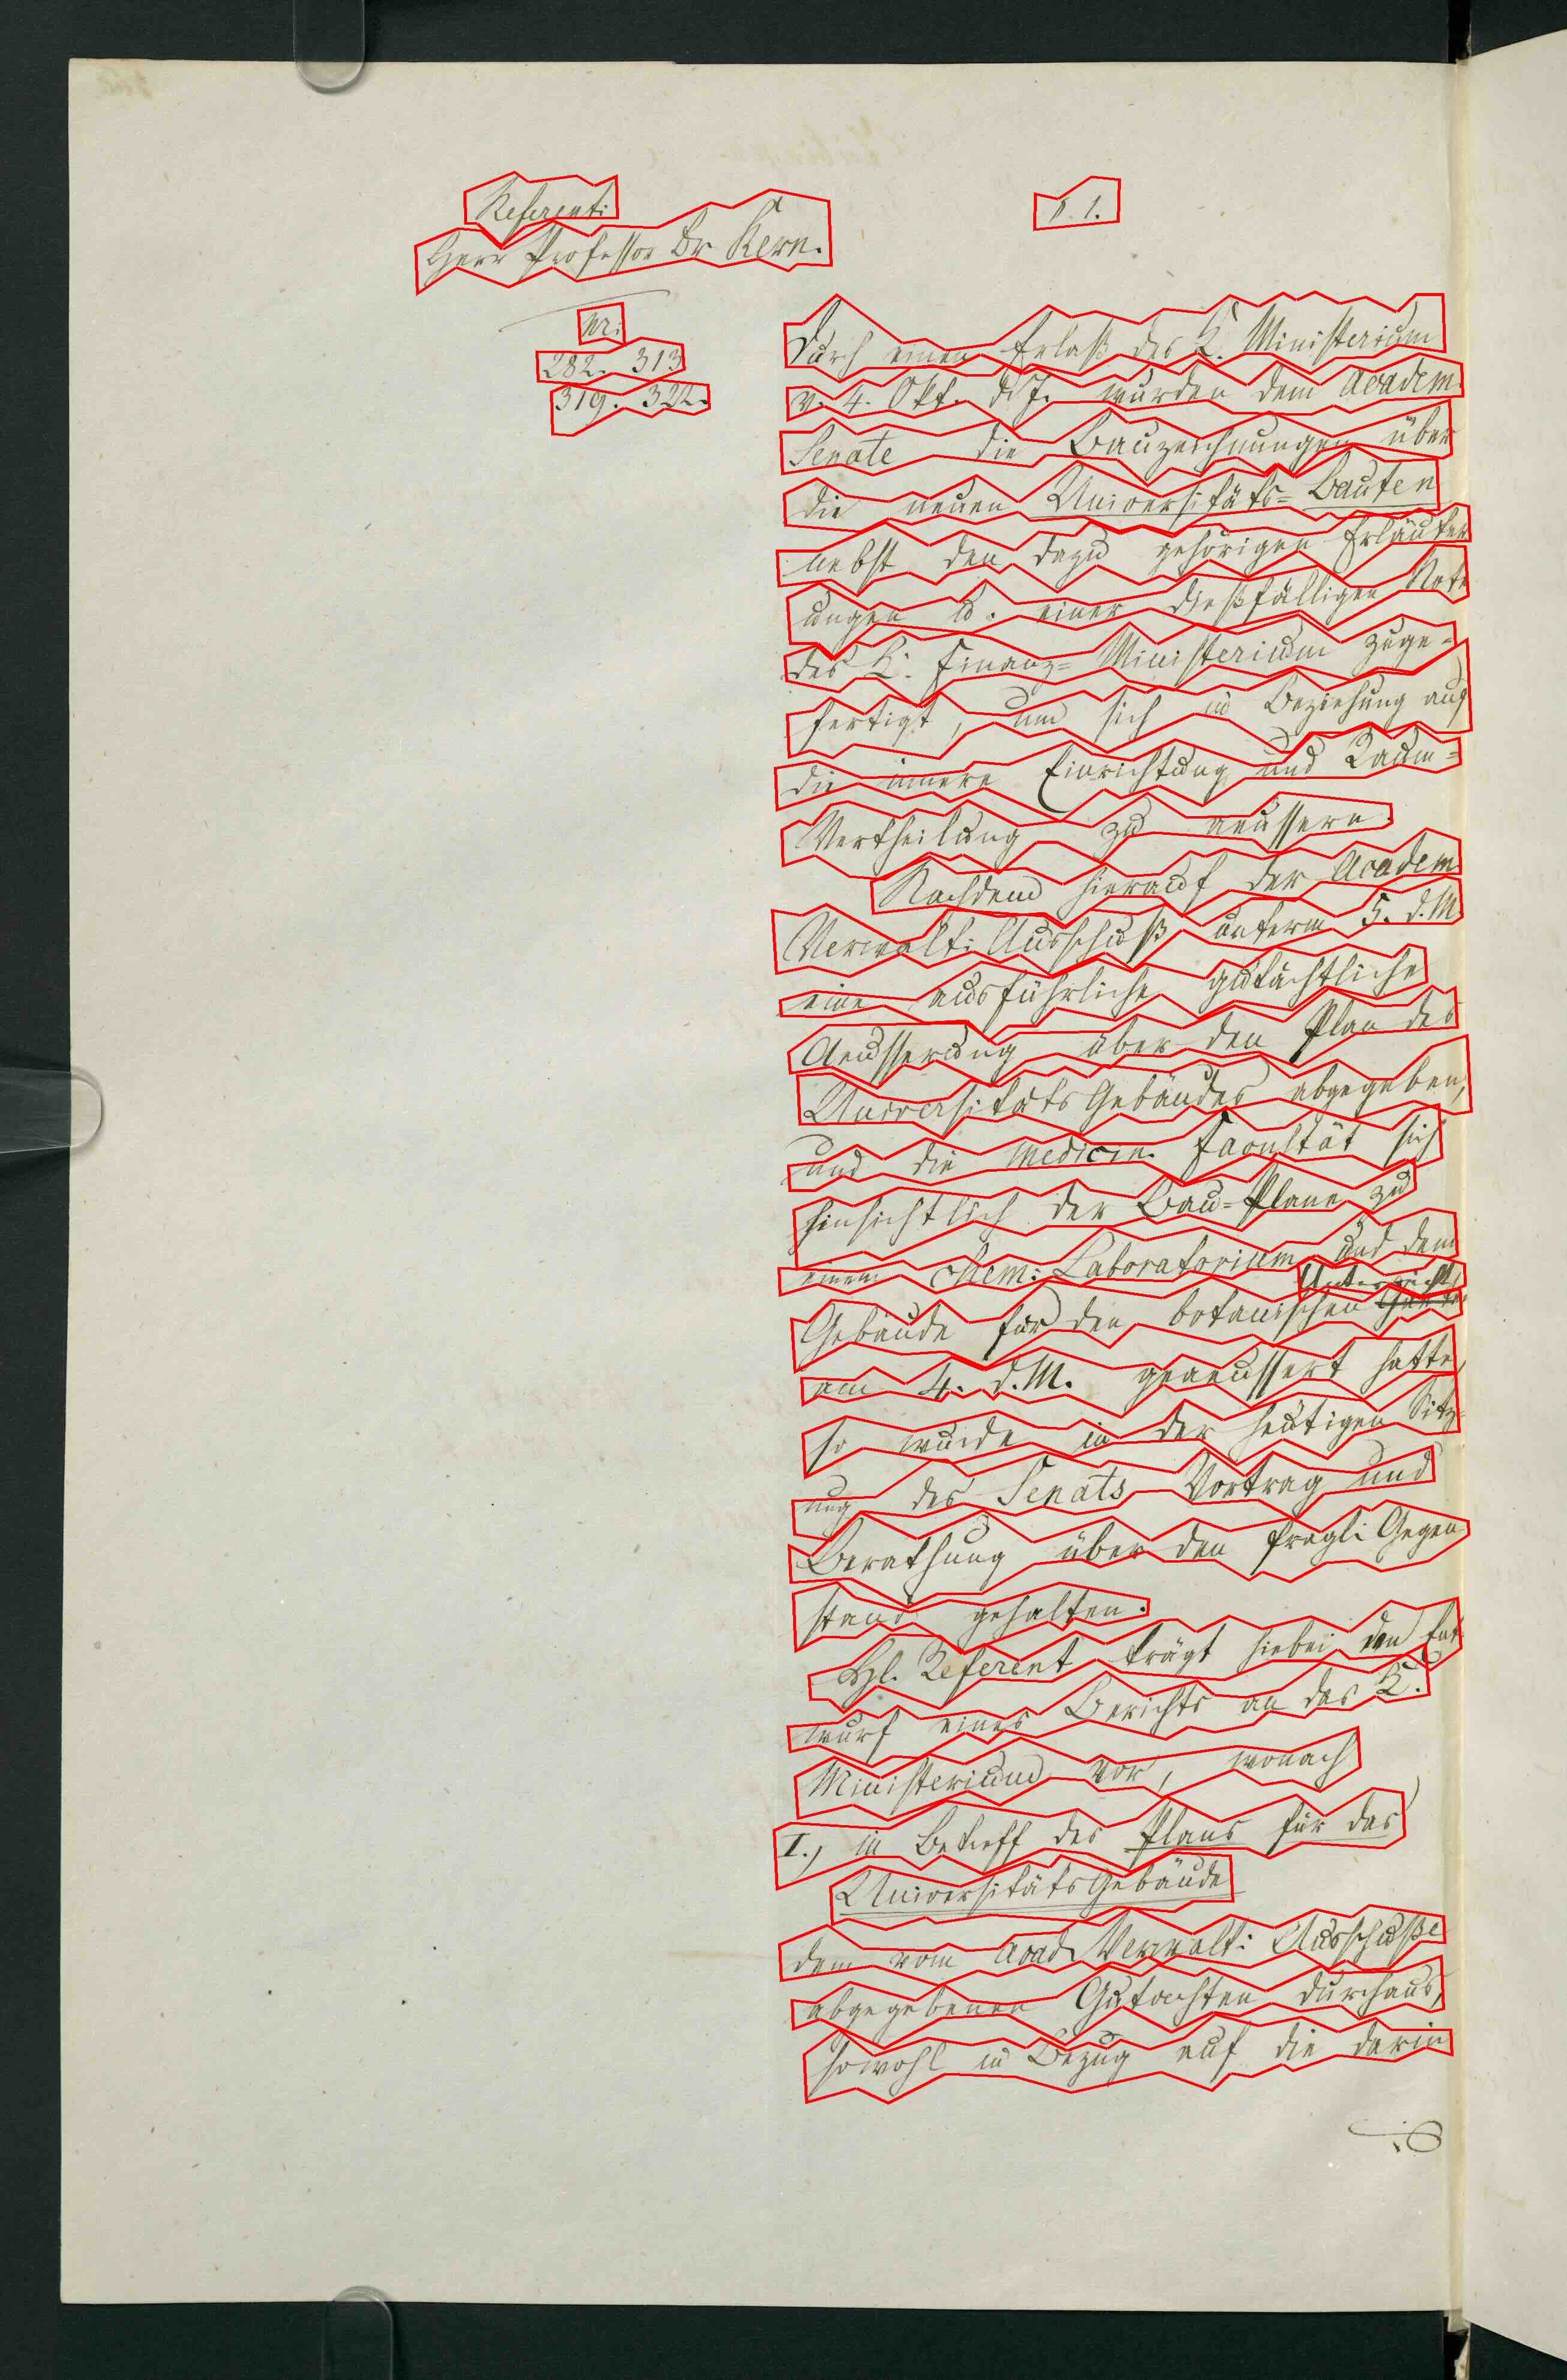 Referent:
Herr Professor Dr Kern.
§. 1.
Nr:
282. 313
319. 322.
Durch einen Erlaß des K. Ministerium
v. 4. Okt. d. J. wurden dem Academ.
Senate die Bauzeichnungen über
die neuen Universitäts= Bauten
nebst den dazu gehörigen Erläuter
ungen u. einer dießfälligen Note
des K. Finanz= Ministerium zuge-
fertigt, um sich in Beziehung auf
die innere Einrichtung und Raum=
Vertheilung zu aeussern.
Nachdem hierauf der Academ.
Verwalt: Ausschuß unterm 5. d. M.
eine ausführliche gutächtliche
Aeusserung über den Plan des
Universitäts Gebäudes abgegeben,
und die medicin. Facultät sich
hinsichtlich der Bau=Plane zu
einem chem: Laboratorium und dem
Unterricht,
Gebäude für den botanischen
am 4. d. M. geaeussert hatte,
so wurde in der heutigen Sitz-
ung des Senats Vortrag und
Berathung über den fragl: Gegen
stand gehalten.
Hl. Referent trägt hiebei den Ent-
wurf eines Berichts an das K.
Ministerium vor, wonach
I., in Betreff des Plans für das
Universitäts Gebäude
dem vom Acad. Verwalt: Ausschuße
abgegebenen Gutachten durchaus,
sowohl in Bezug auf die darin